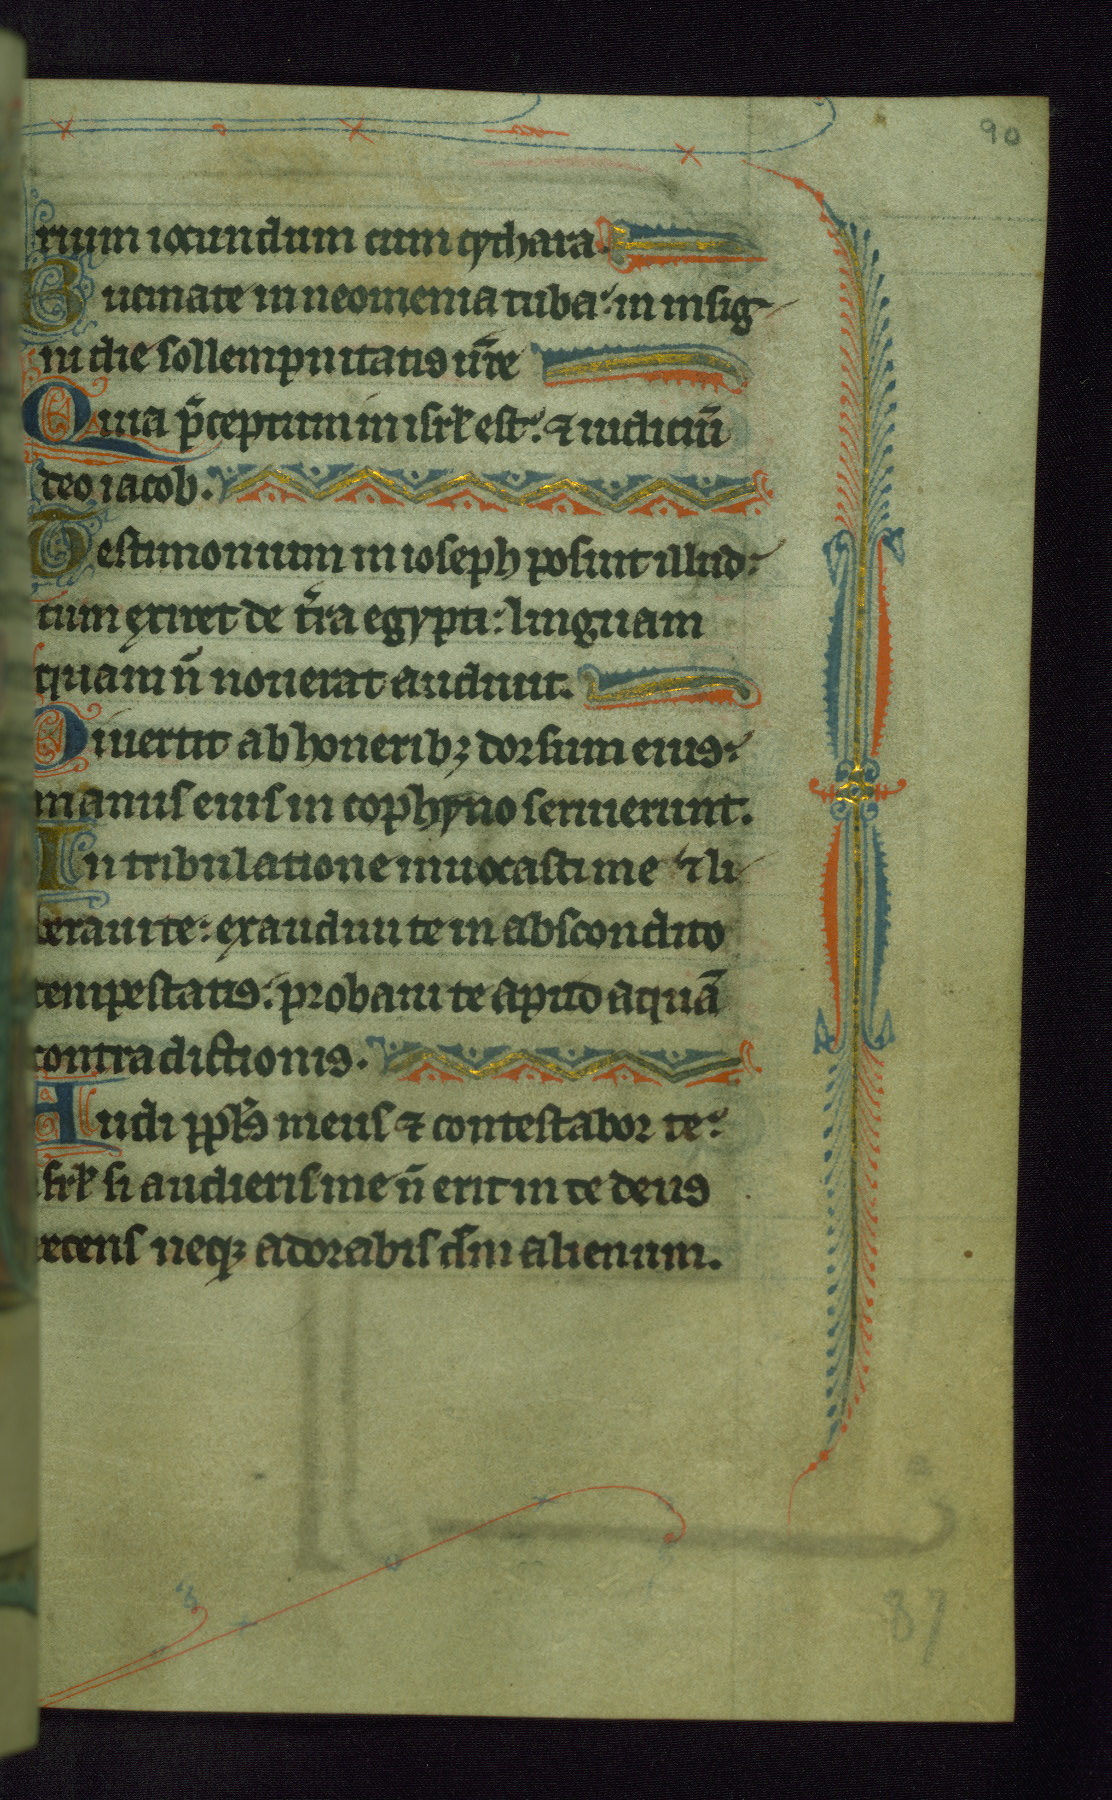 90
rium iocundum cum cythara.
Bucinate in neomenia tuba: in insig
ni die sollempnitatis ur̄e
Quia p̄ceptum in isrl̄ est: ⁊ iudiciū
deo iacob.
Testimonium in ioseph posuit illud:
cum exiret de t̄ra egypti: linguam
quam n̄ nouerat audiuit.
Diuertit ab honeribꝫ dorsum eius:
manus eius in cophyno seruierunt.
In tribulatione inuocasti me ⁊ li
beraui te: exaudiui te in abscondito
tempestatis: probaui te apud aquā
contradictionis.
Audi ppl̄s meus ⁊ contestabor te:
isrl̄ si audieris me n̄ erit in te deus
recens neqꝫ adorabis dm̄ alienum.
87